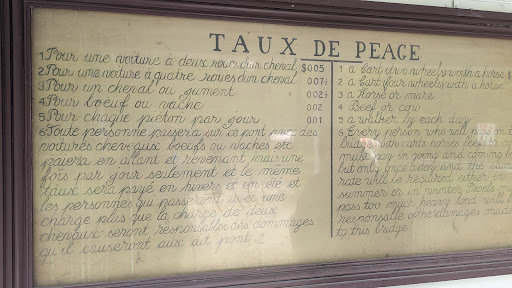 TAUX DE PEAGE
1 Pour une voiture à deux roues d'un cheval, $005
2 Pour une voiture a quatre roues d'un cheval, 007½
3 Pour un cheval ou gument 002½
4 Pour boeuf ou vache 002
5 Pour chaque pieton par gour 001
6 Toute personne passera sur ce pont avec des
voitures chevaux boeufs ou vaches etc
pavera en allant et revenant mais une
fois par gour seulement et le même
taux sera payé en hivers et en eté et
les personnes qui passeront avec une
charge plus que la charge de deux
chevaux seront responsables des dommages
qu'il causeront aux dit pont
1 a Cart two wheels worth a horse $
2 a Cart four wheels with a horse
3 a Horse or mare
4 Beef or cow
5 a walker by each day
6 Every person who will pass on t
bridge with carts horses beefs or
must pay in going and coming b
but only once a day and the same
rate will be required either in
summer or in winter
pass too much heavy load will b
responsable other damages made
to this bridge